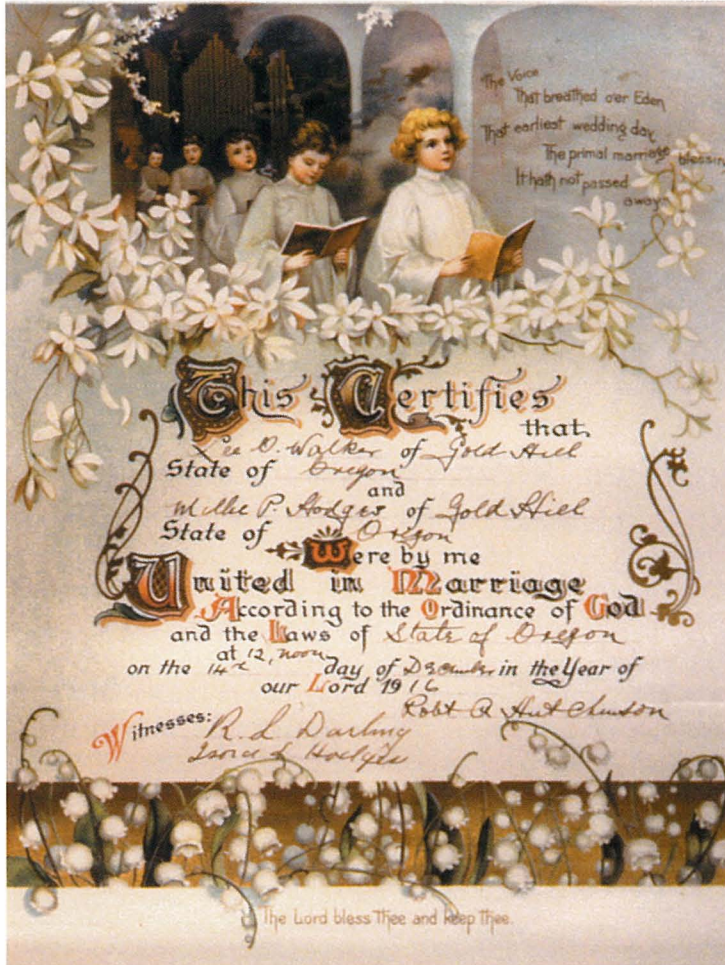 The Voice
That breathed o'er Eden
That earliest wedding day,
The primal marriage blessing
It hath not passed
away.
This Certifies
that
Lee O. Walker of Gold Hill
State of Oregon
and
P. Hodges of Gold Hill
State of Oregon
Were by me
United in Marriage
According to the Ordinance of God
and the Laws of State of Oregon
at 12, noon
on the 14th day of December in the Year of
our Lord 1916
Robt A Hutchinson
Witnesses:
R. L. Darling
Hodges
The Lord bless Thee and keep Thee.